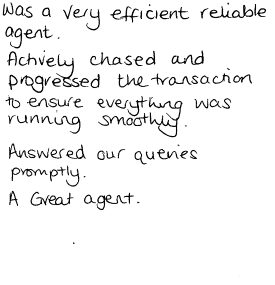 Was a very efficient reliable
agent.
Actively chased and
progressed the transaction
to ensure everything was
running smoothly.
Answered our queries
promptly.
A Great agent.